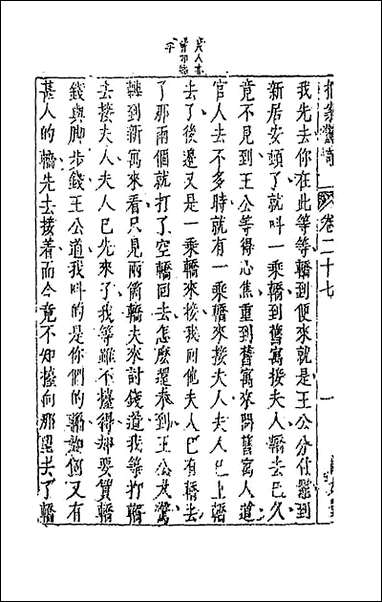 拍案驚奇 卷二十七 一
我先去你在此等等轎到便來就是王公分付罷到
新居安頓了就叫一乘轎到舊寓接夫人轎去已久
竟不見到王公等得心焦重到舊寓來問舊寓人道
官人去不多時就有一乘轎來接夫人夫人已上轎
去了後邊又是一乘轎來接我回他夫人已有轎去
了那兩個就打了空轎回去怎麼還未到王公大驚
轉到新寓來看只見兩箇轎夫來討錢道我等打轎
去接夫人夫人已先來了我等雖不擡得却要賃轎
錢與脚步錢王公道我叫的是你們的轎如何又有
甚人的轎先去接着而今竟不知擡向那里去了轎